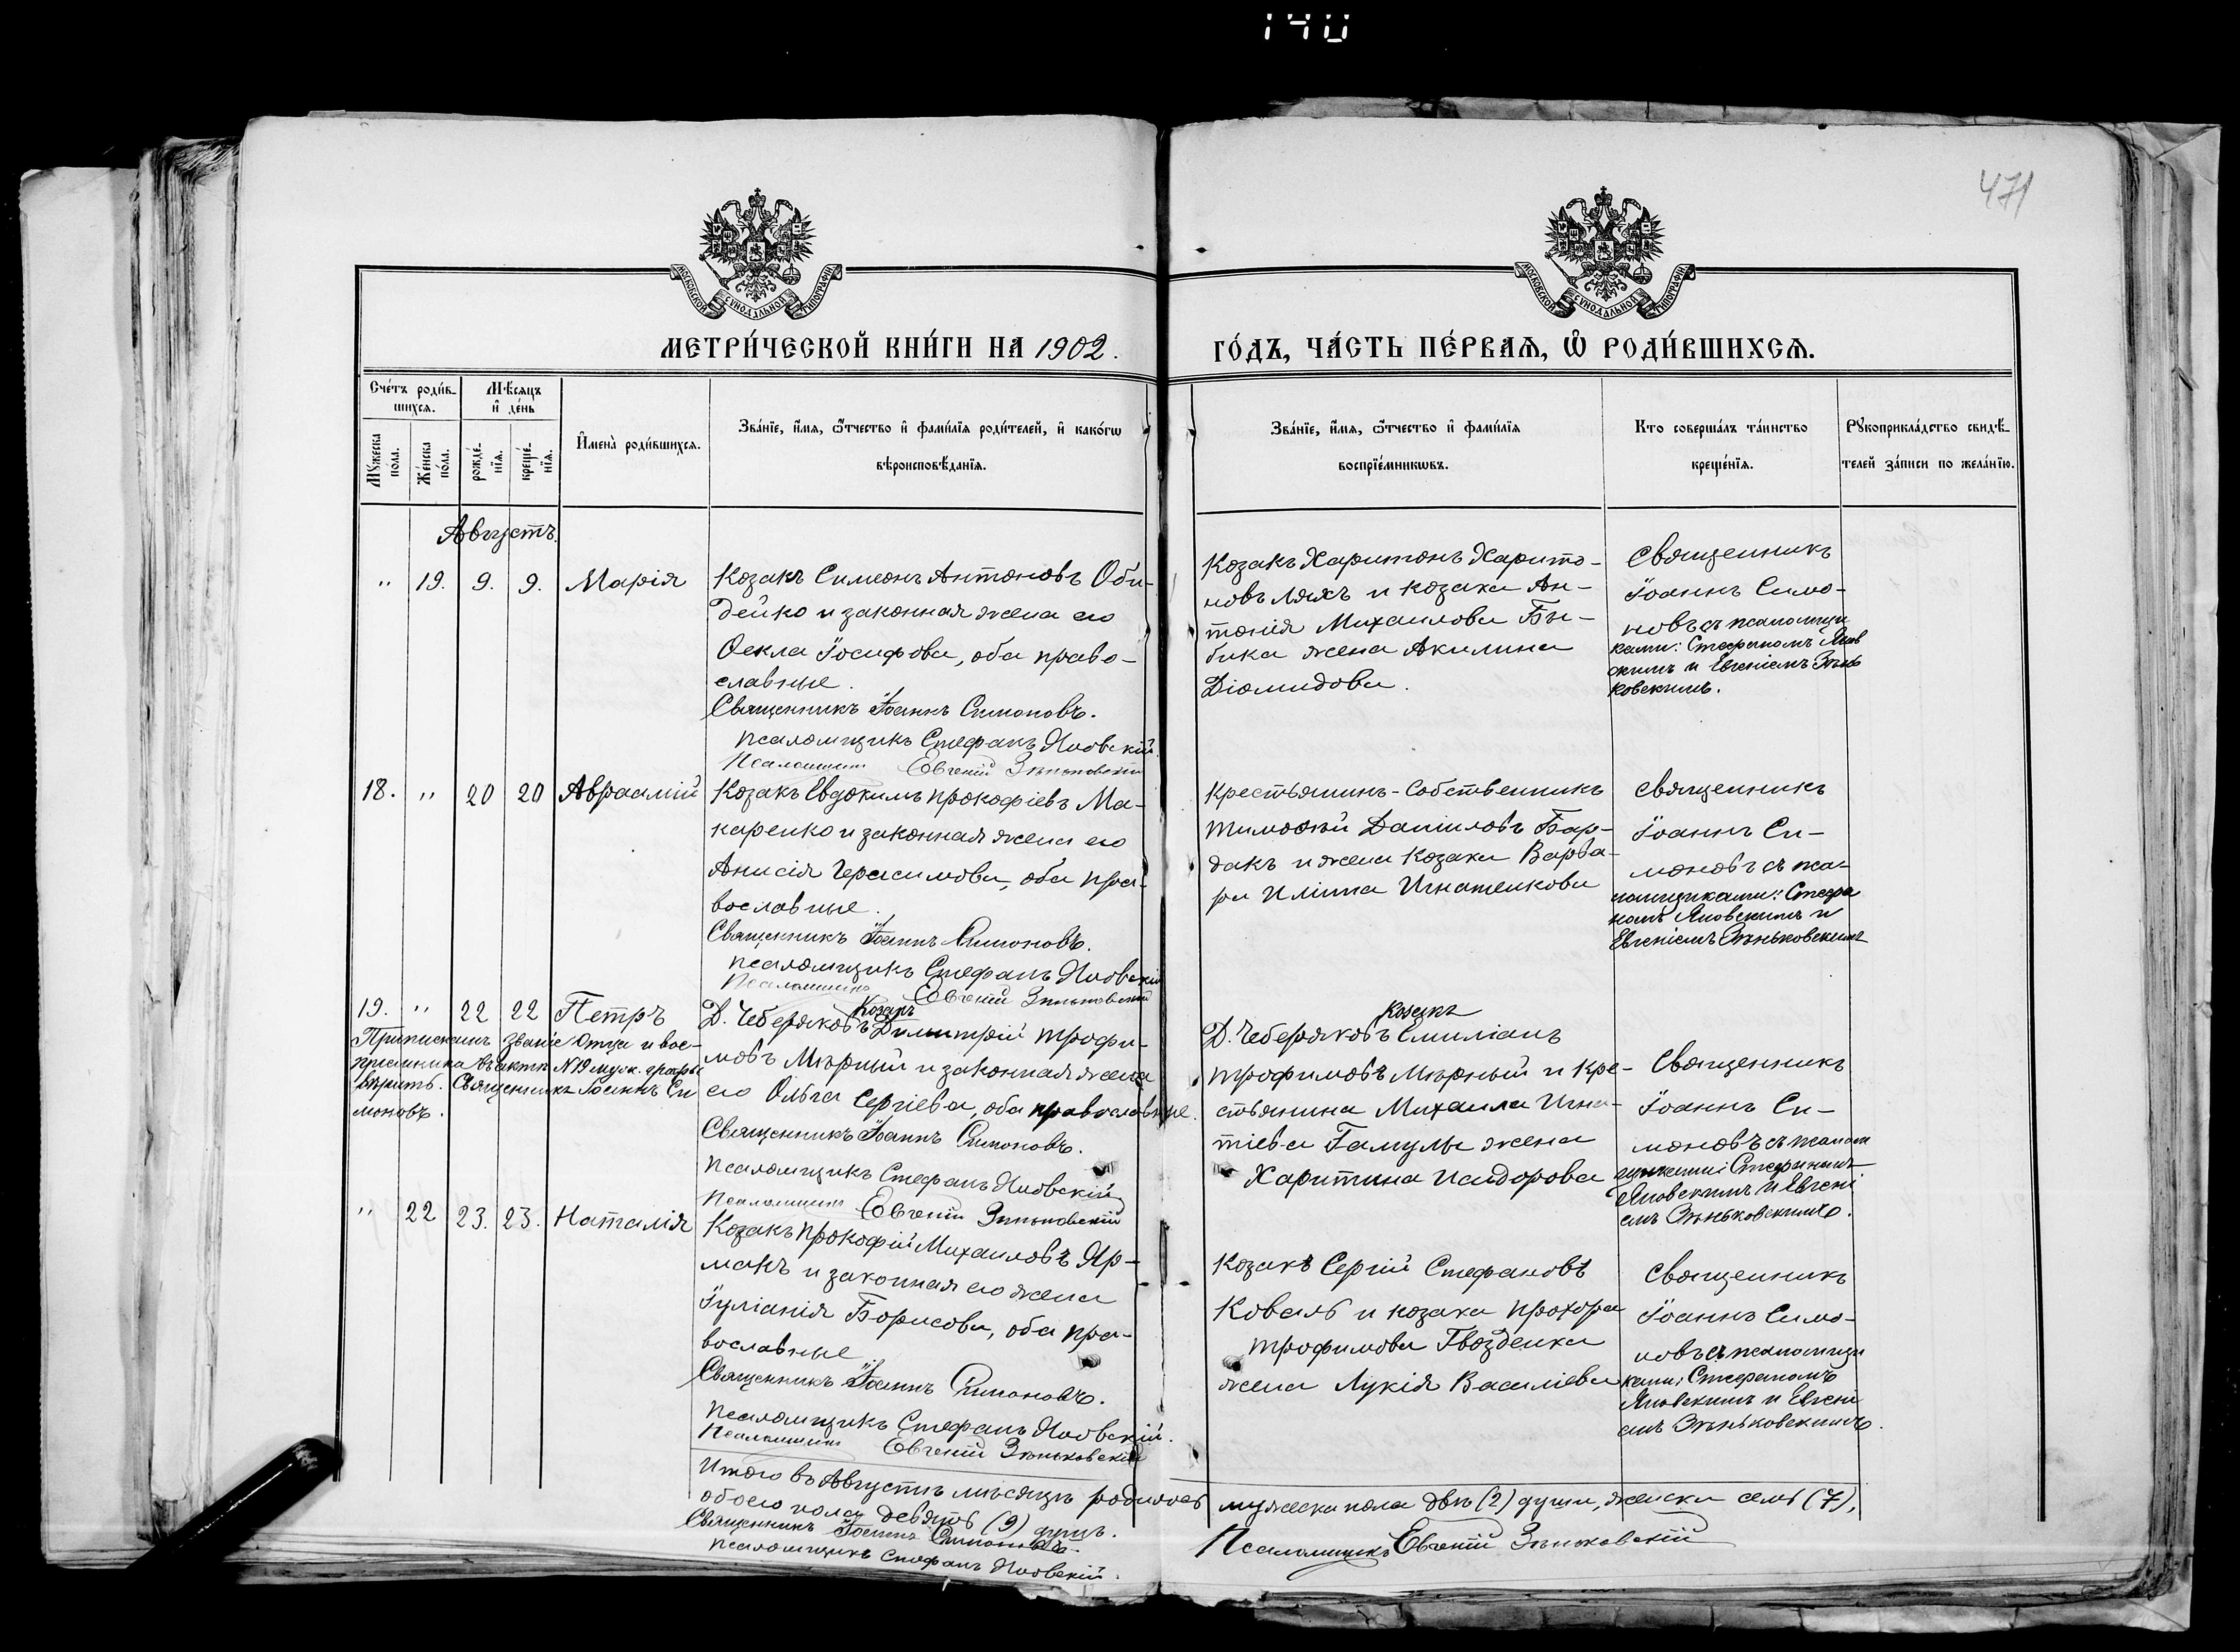 140
471
МОСКОВСКОЙ СѴНОДАЛЬНОЙ ТИПОГРАФІИ
МОСКОВСКОЙ СѴНОДАЛЬНОЙ ТИПОГРАФІИ
МЕТРИ́ЧЕСКОЙ КНИ́ГИ НА 1902.
ГО́ДЪ, ЧА́СТЬ ПЕ́РВАѦ, Ѽ РОДИ́ВШИХСѦ.
Сче́тъ роди́в-
шихсѧ.
Мѣ́сѧцъ
и҆ де́нь
Мꙋ́жеска
по́ла.
Же́нска
по́ла.
рожде́-
нїѧ.
креще́-
нїѧ.
И҆мена̀ роди́вшихсѧ.
Зва́нїе, и҆́мѧ, ѻ҆́тчество и҆ фами́лїѧ роди́телей, и҆ како́гѡ
вѣроисповѣ́данїѧ.
Зва́нїе, и҆́мѧ, ѻ҆́тчество и҆ фами́лїѧ
воспрїе́мникѡвъ.
Кто̀ соверша́лъ та́инство
креще́нїѧ.
Рꙋкоприкла́дство свидѣ́-
телей за́писи по жела́нїю.
Августъ.
„ 19. 9. 9. Марія
Козакъ Симеонъ Антоновъ Оби-
дейко и законная жена его
Ѳекла Іосифова, оба право-
славные.
Священникъ Іоаннъ Симоновъ.
Псаломщикъ Стефанъ Яновскій
Псаломщикъ Евгеній Зѣньковскій
Козакъ Харитонъ Харито-
новъ Ляхъ и козака Ан-
тонія Михаилова Бы-
бика жена Акилина
Діомидова.
Священникъ
Іоаннъ Симо-
новъ съ псаломщи
ками: Стефаномъ Янов
скимъ и Евгеніемъ Зѣнь
ковскимъ.
18. „ 20 20 Авраамій
Козакъ Евдокимъ Прокофіевъ Ма-
каренко и законная жена его
Анисія Герасимова, оба пра-
вославные.
Священникъ Іоаннъ Симоновъ.
Псаломщикъ Стефанъ Яновскій
Псаломщикъ Евгеній Зѣньковскій
Крестьянинъ-собственникъ
Тимоѳей Даниловъ Бар-
дакъ и жена козака Варва-
ра Игнатенкова
Священникъ
Іоаннъ Си-
моновъ съ пса-
ломщиками: Стефа
номъ Яновскимъ и
Евгеніемъ Зѣньковскимъ
19. „ 22 22 Петръ
Приписаннъ званіе отца и вос-
пріемника въ актѣ №19 муж. графы
вѣрить. Священникъ Іоаннъ Си
моновъ.
Козакъ
Д. Чеберяковъ Димитрій Трофи-
мовъ Мѣрный и законная жена
его Ольга Сергіева, оба православные.
Священникъ Іоаннъ Симоновъ.
Псаломщикъ Стефанъ Яновскій
Псаломщикъ Евгеній Зѣньковскій
Козакъ
Д. Чеберяковъ Емиліанъ
Трофимовъ Мѣрный и кре-
стьянина Михаила Игна-
тіева Гамулы жена
Харитина Исидорова
Священникъ
Іоаннъ Си-
моновъ съ псалом
щиками: Стефаномъ
Яновскимъ и Евгені
емъ Зѣньковскимъ.
„ 22 23. 23. Наталія
Козакъ Прокофій Михаиловъ Яр-
макъ и законная его жена
Іуліанія Борисова, оба пра-
вославные.
Священникъ Іоаннъ Симоновъ.
Псаломщикъ Стефанъ Яновскій.
Псаломщикъ Евгеній Зѣньковскій
Козакъ Сергій Стефановъ
Коваль и козака Прохора
Трофимова Гвозденка
жена Лукія Василіева
Священникъ
Іоаннъ Симо-
новъ съ псаломщи
ками: Стефаномъ
Яновскимъ и Евгені
емъ Зѣньковскимъ.
Итого въ Августѣ мѣсяцѣ родилось мужеска пола двѣ (2) души, женска семь (7),
обоего пола девять (9) душъ.
Священникъ Іоаннъ Симоновъ.
Псаломщикъ Стефанъ Яновскій.
Псаломщикъ Евгеній Зѣньковскій